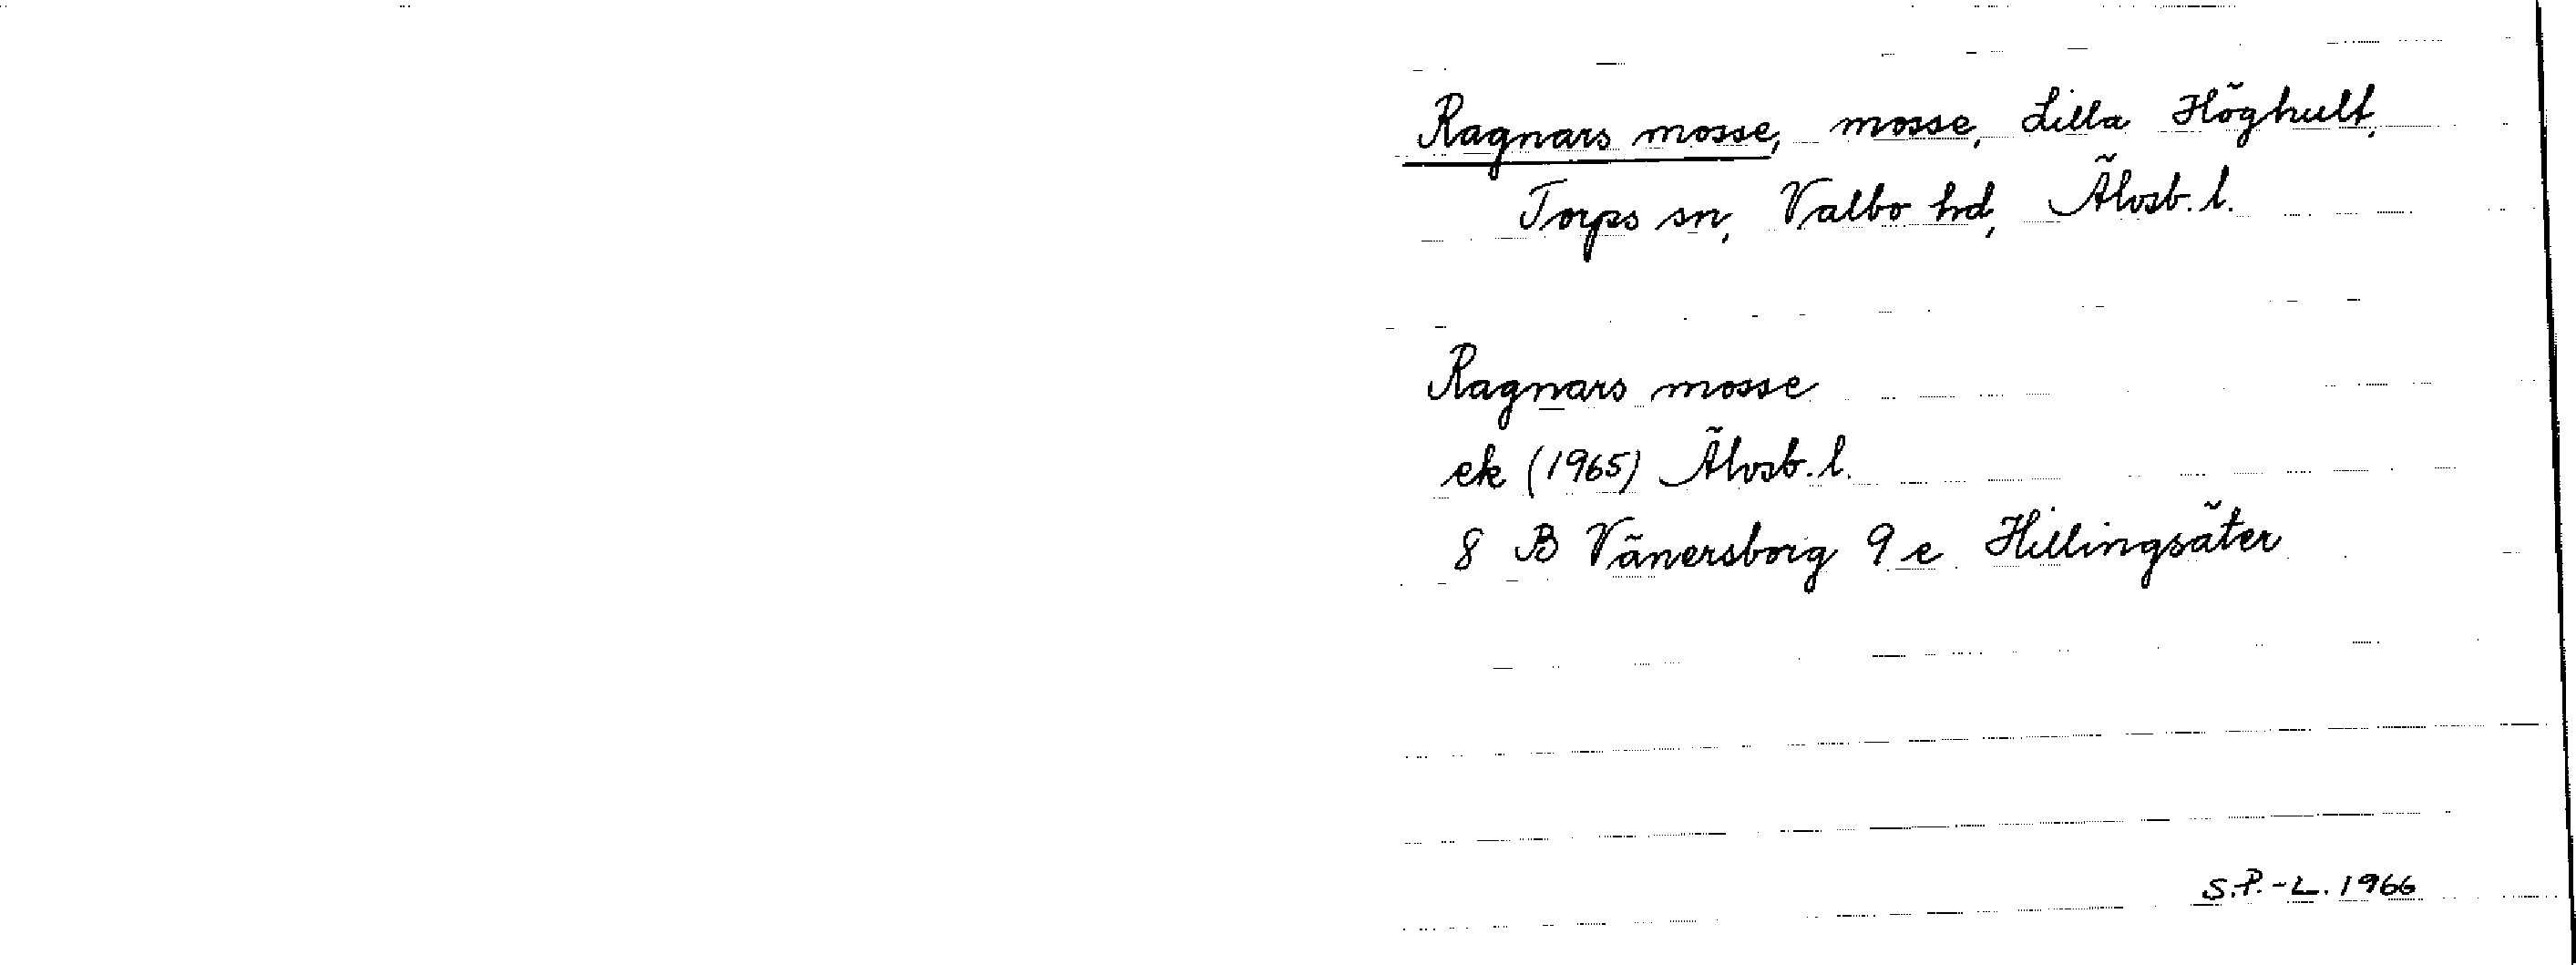 Ragnars mosse, mosse, Lilla Höghult,
Torps sn, Valbo hd, Älvsb. l.
Ragnars mosse
ek (1965) Älvsb. l.
8 B Vänersborg 9 e Hillingsäter
S.P.-L. 1966